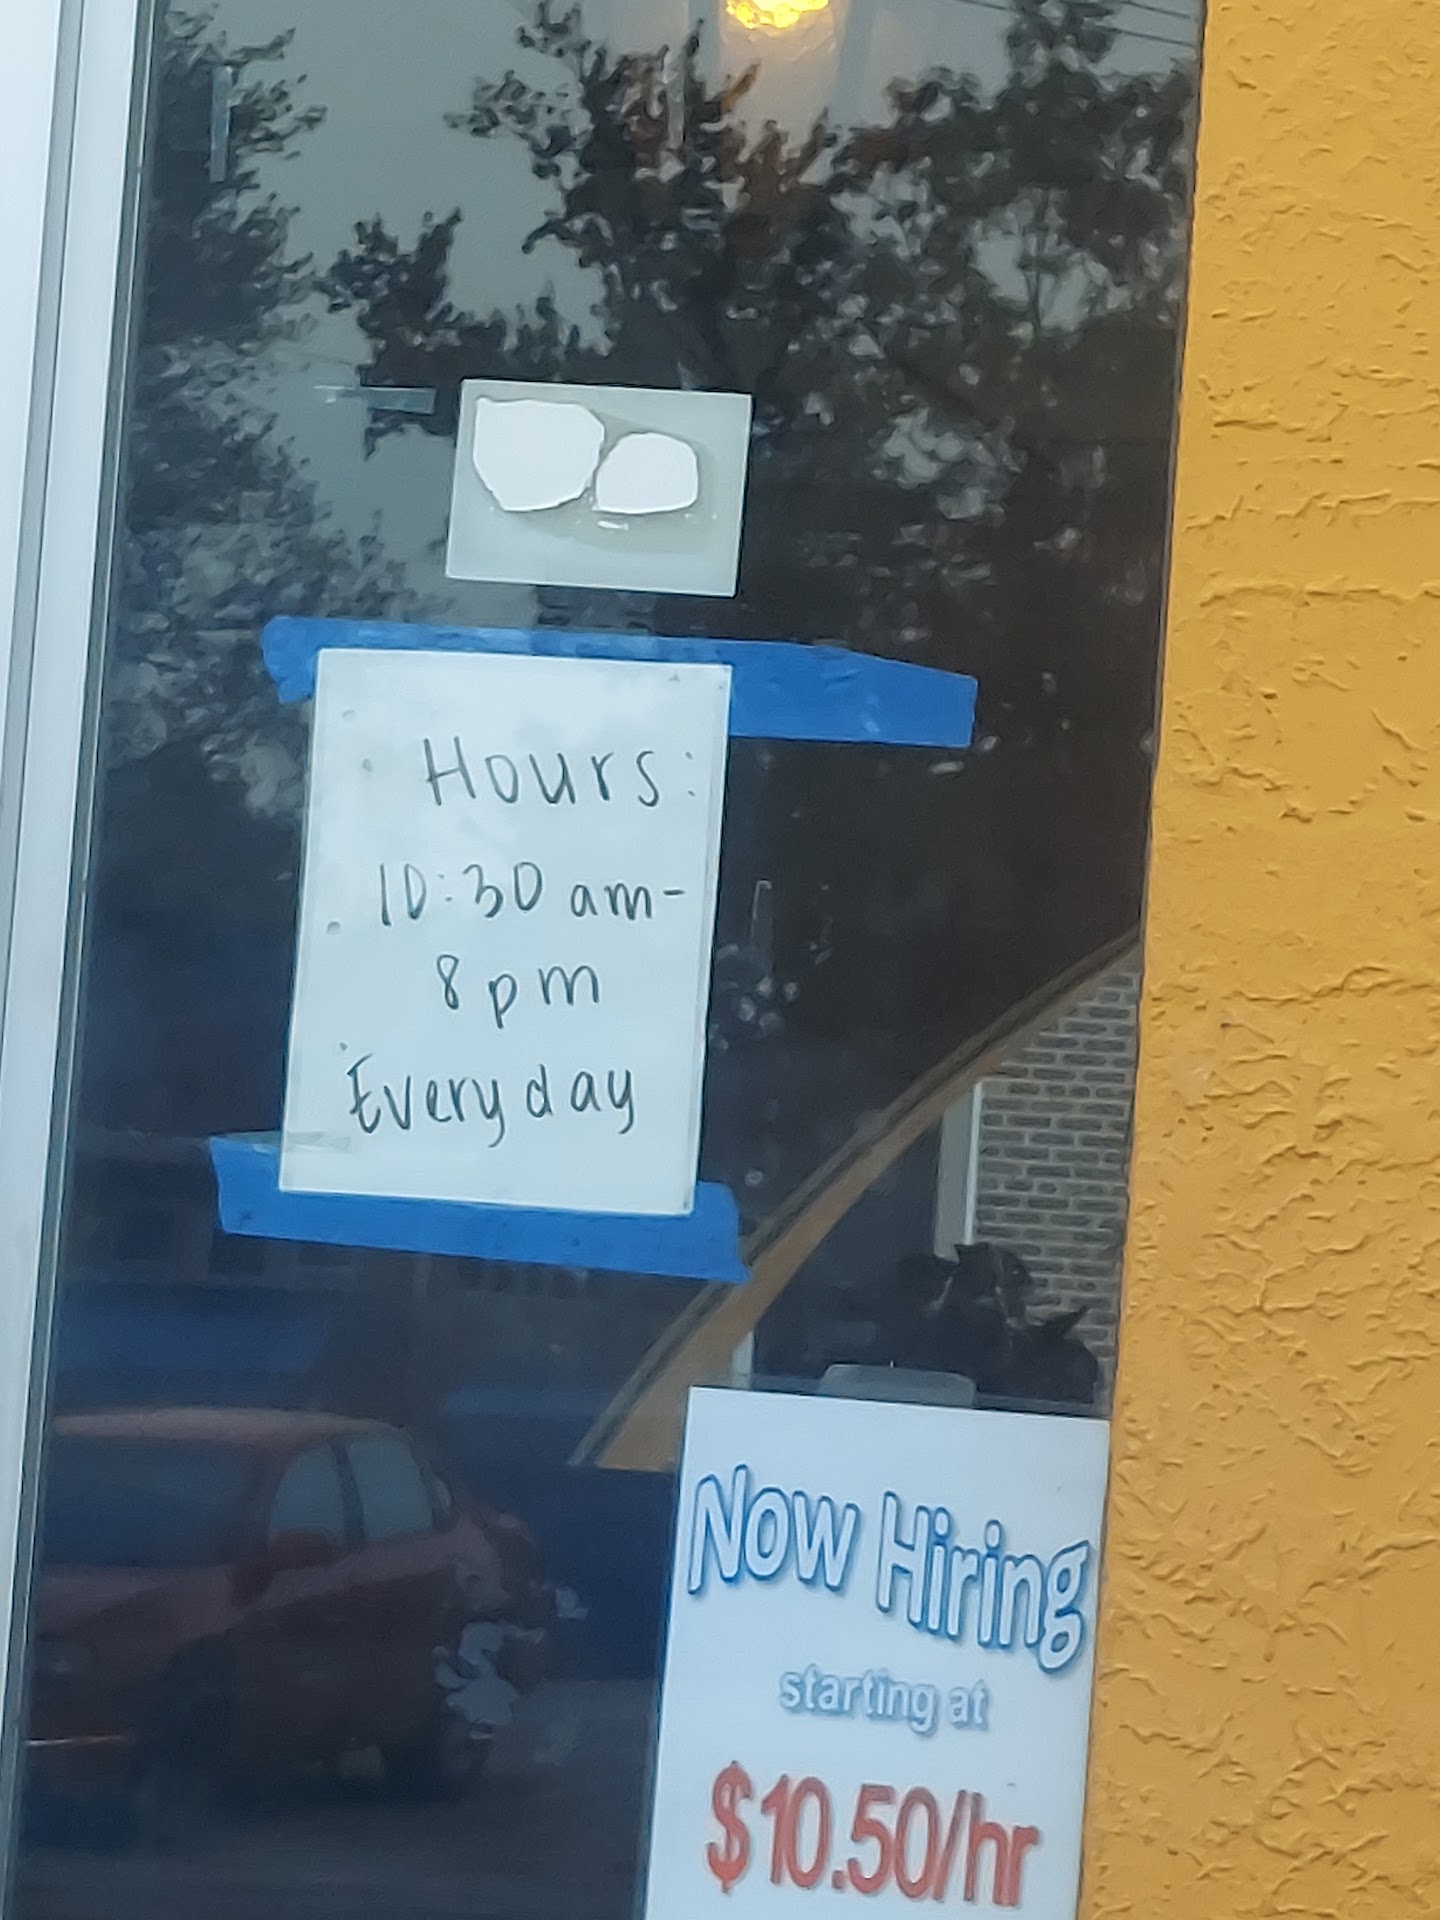 Hours:
10:30 am-
8pm
Everyday
Now Hiring
starting at
$10.50/hr